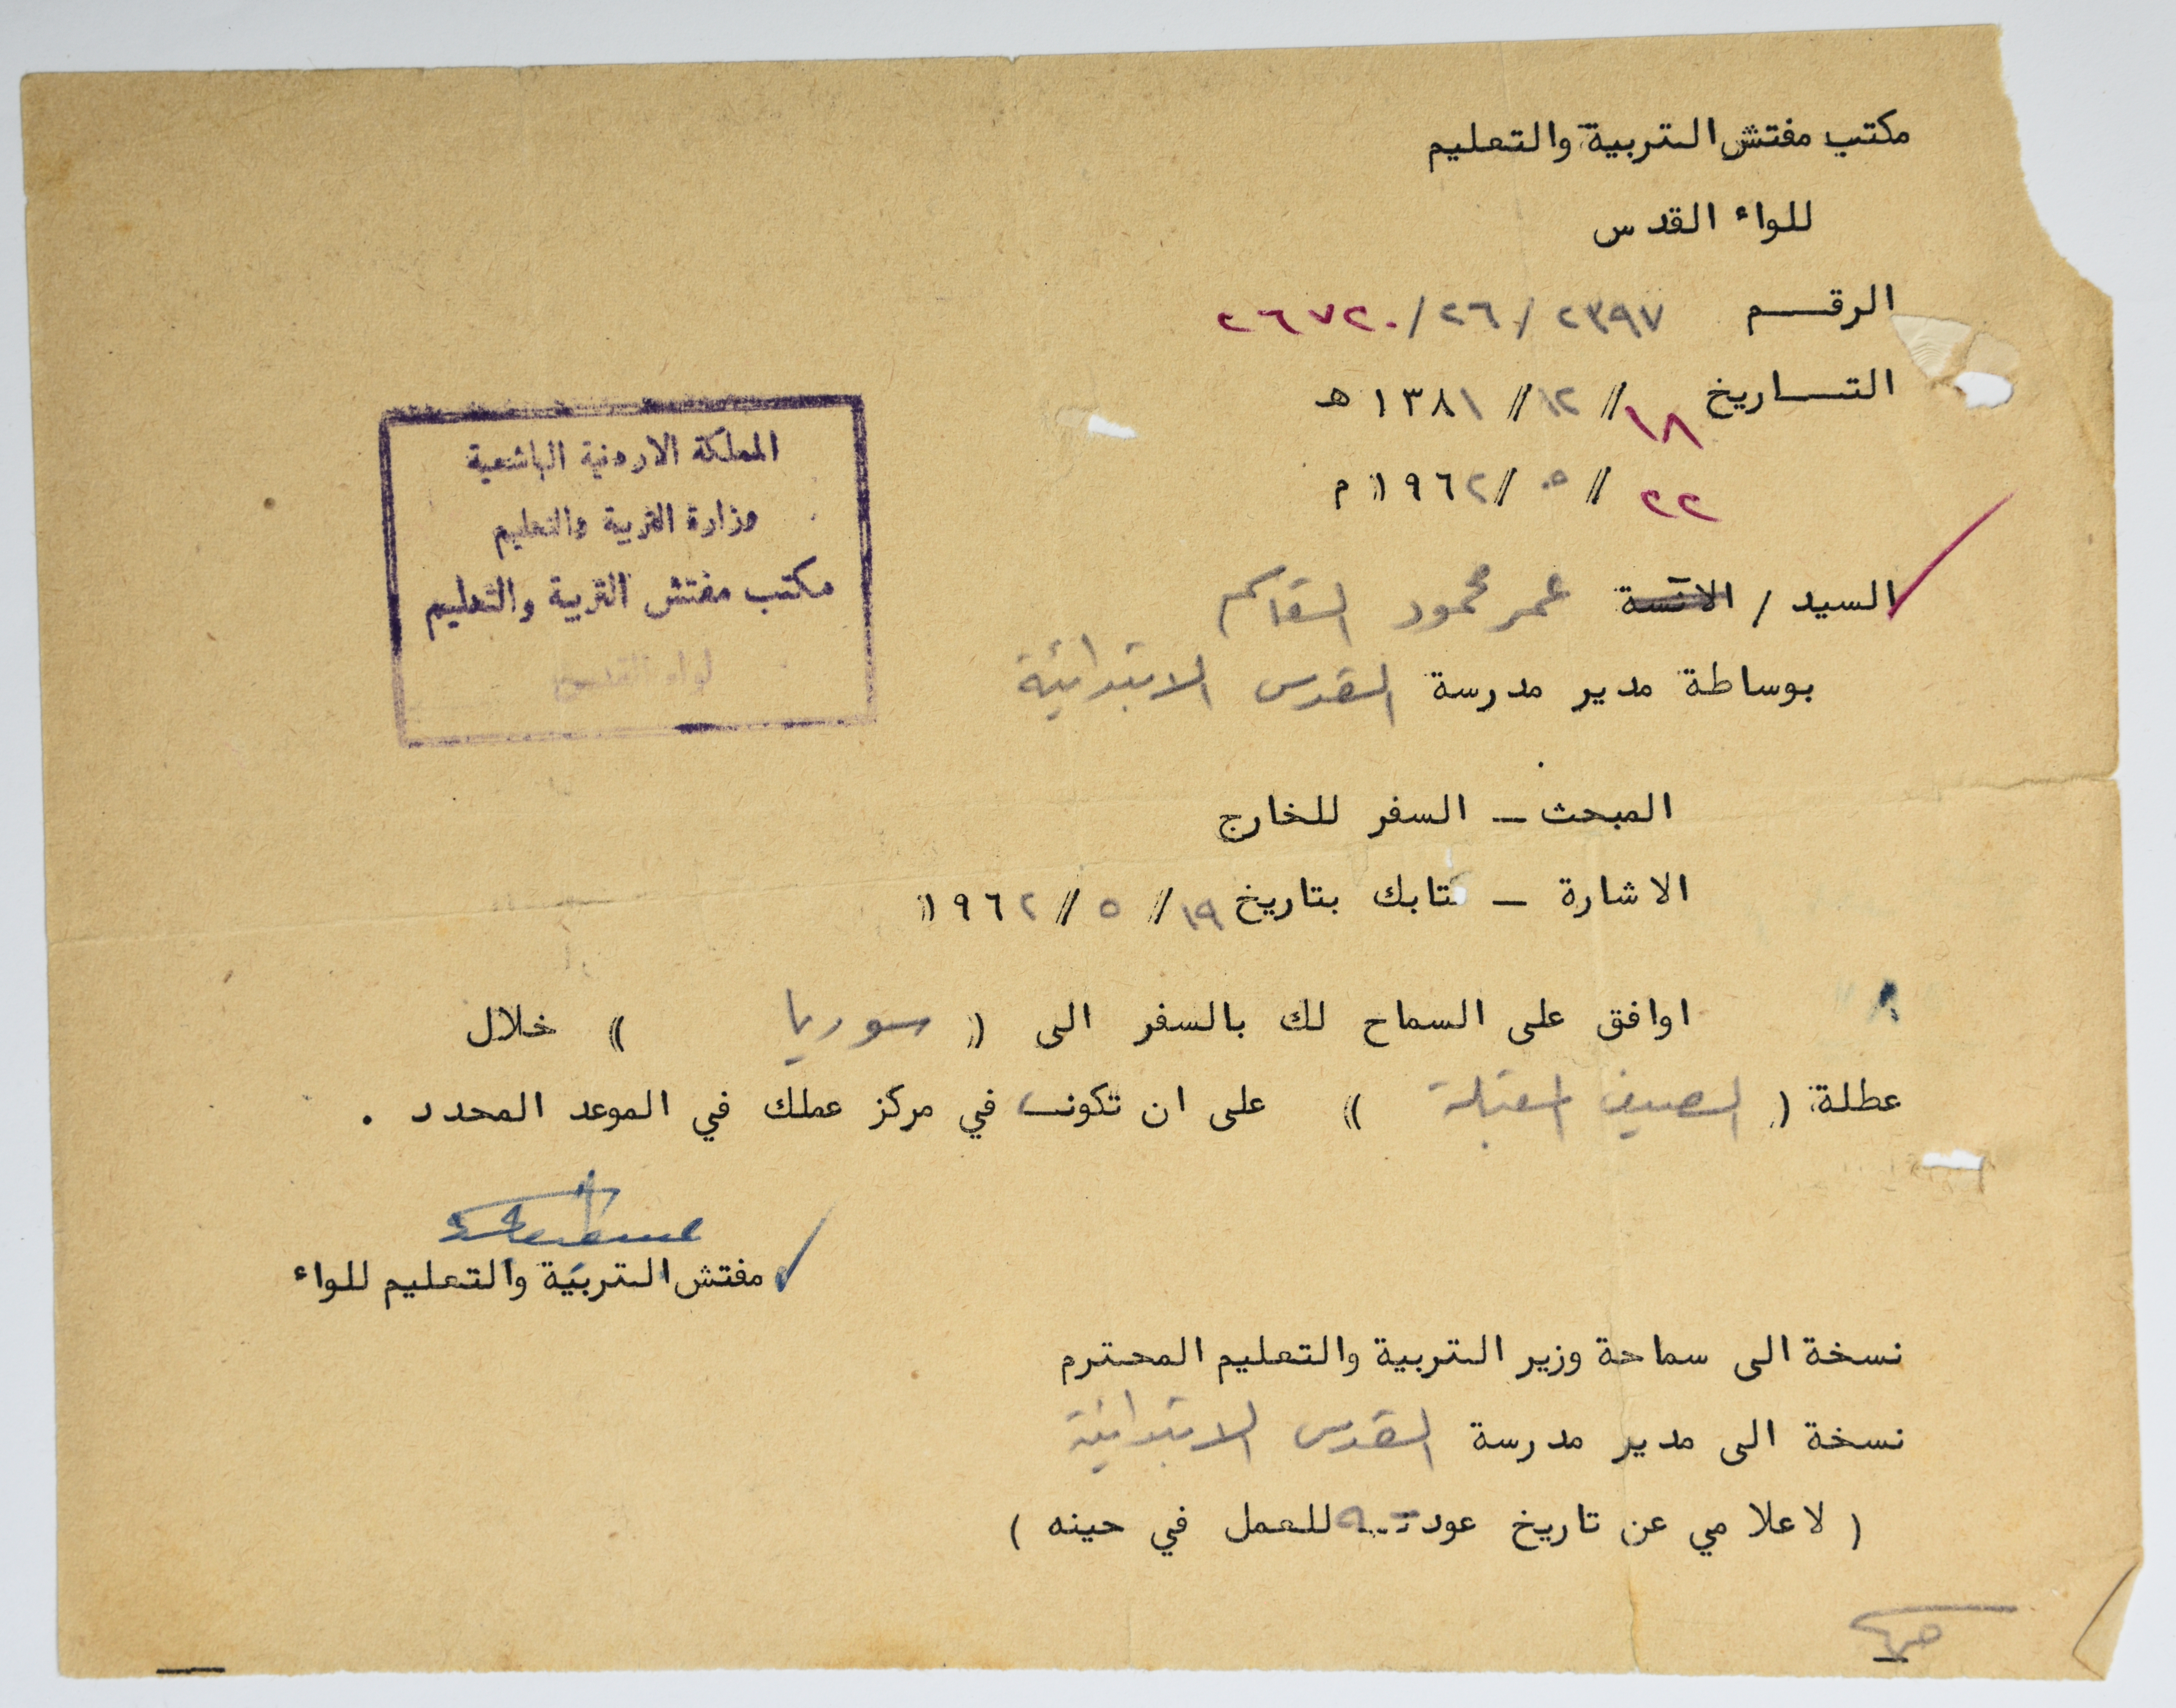 مكتب مفتش التربية والتعليم
للواء القدس
الرقم ٢٣٩٧/٢٦/٢٦٧٢٠
التاريخ ١٨/١٢/١٣٨١ هـ
٢٢/٥/١٩٦٢ م
السيد / الانسة عمر محمود القاسم
بوساطة مدير مدرسة القدس الابتدائية
المملكة الاردنية الهاشمية
وزارة التربية والتعليم
مكتب مفتش التربية والتعليم
لواء القدس
المبحث ــ السفر للخارج
الاشارة ــ كتابك بتاريخ ١٩/٥/١٩٦٢
اوافق على السماح لك بالسفر الى ( سوريا ) خلال
عطلة ( الصيف المقبلة ) على ان تكون في مركز عملك في الموعد المحدد .
مفتش التربية والتعليم للواء
نسخة الى سماحة وزير التربية والتعليم المحترم
نسخة الى مدير مدرسة القدس الابتدائية
( لاعلامي عن تاريخ عودته للعمل في حينه )